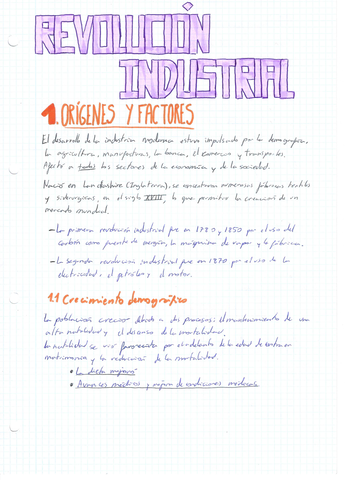 REVOLUCIÓN
INDUSTRIAL
1. ORÍGENES Y FACTORES
El desarrollo de la industria moderna estuvo impulsado por la demografía,
la agricultura, manufacturas, la banca, el comercio y transportes.
Afectó a todos los sectores de la economía y de la sociedad.
Nació en Lancashire (Inglaterra), se concentraron numerosas fábricas textiles
y siderúrgicas, en el siglo XVIII, lo que permitió la creación de un
mercado mundial.
- La primera revolución industrial fue en 1780 y 1850 por el uso del
carbón como fuente de energía, la máquina de vapor y la fábrica.
- La segunda revolución industrial fue en 1870 por el uso de la
electricidad, el petróleo y el motor.
1.1 Crecimiento demográfico
La población creció debido a dos procesos: el mantenimiento de una
alta natalidad y el descenso de la mortalidad.
La natalidad se vio favorecida por el adelanto de la edad de contraer
matrimonio y la reducción de la mortalidad.
• La dieta mejoró
• Avances médicos y mejora de condiciones